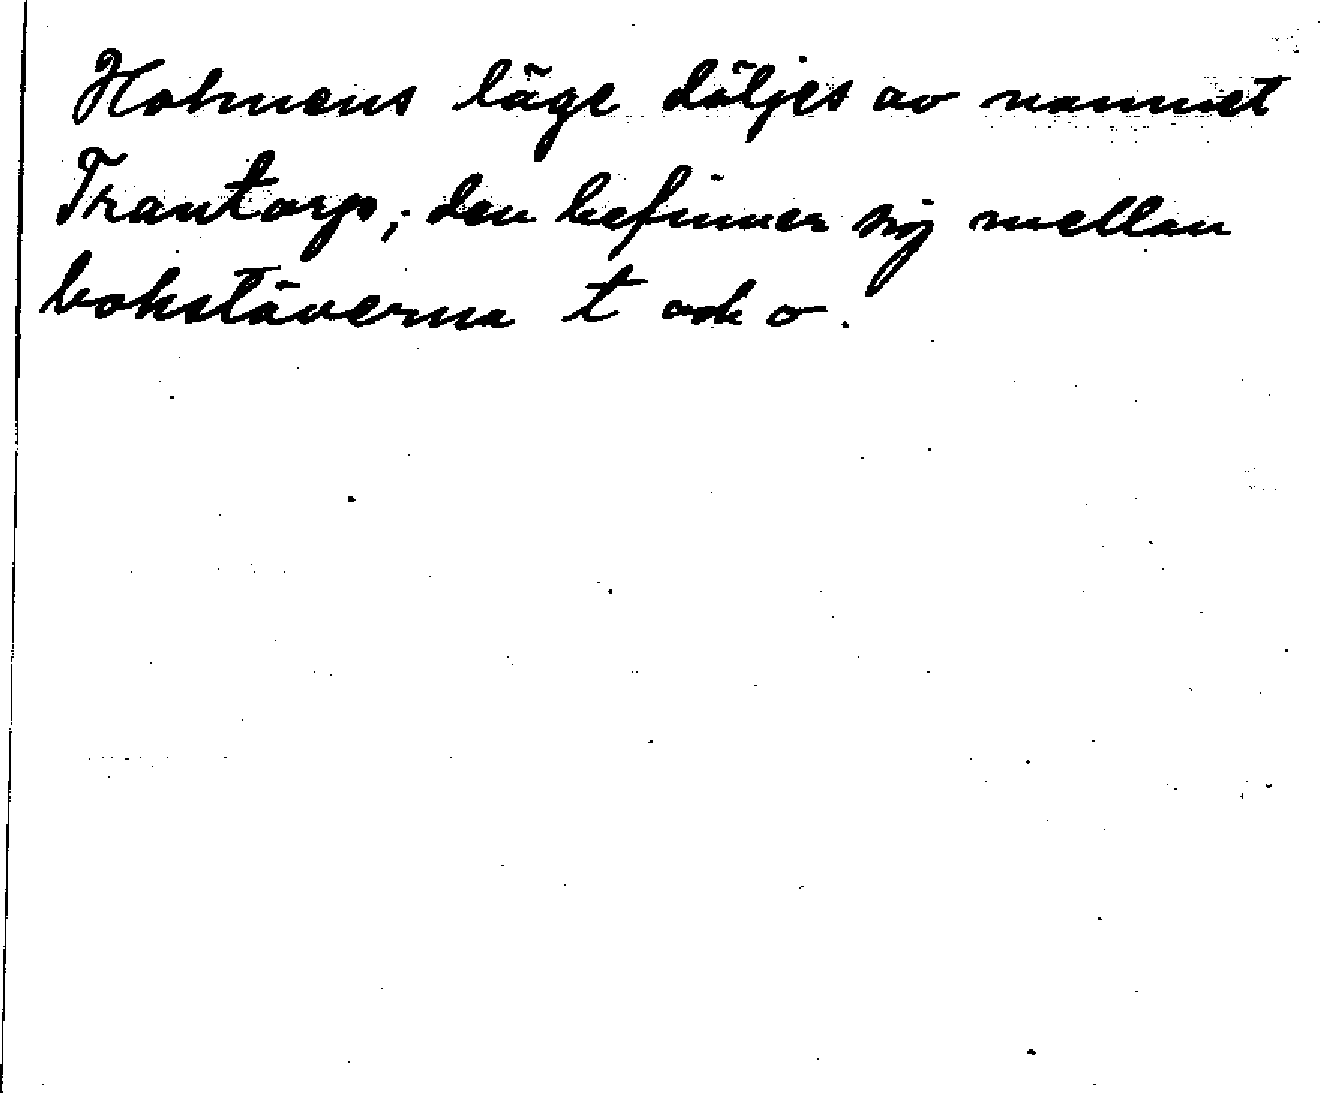 Holmens läge döljes av namnet
Trantorp, den befinner sig mellan
bokstäverna t och o.